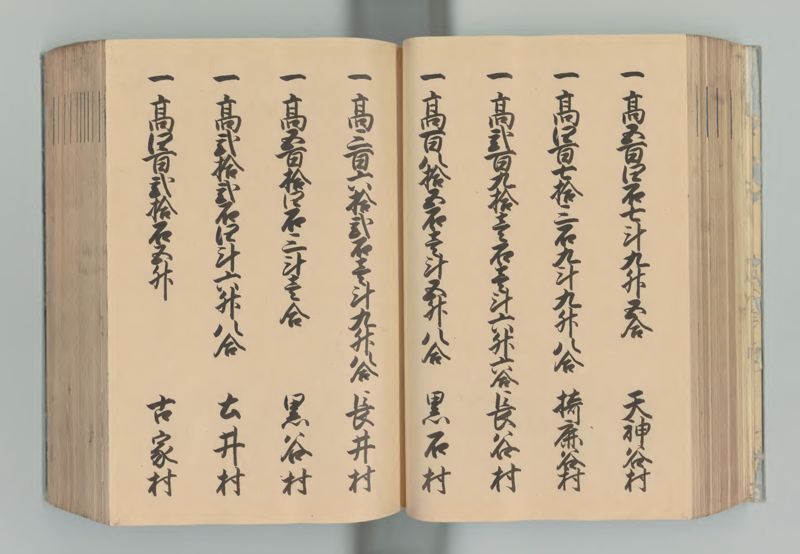 一高五百四石七斗九升五合 天神谷村
一高四百七拾三石九斗九升八合 椅鹿谷村
一高弐百九拾壱石壱斗六升六合 長谷村
一高百八拾五石壱斗五升八合 黒石村
一高三百六拾弐石壱斗九升八合 長井村
一高五百拾四石三斗壱合 黒谷村
一高弐拾弐石四斗六升八合 土井村
一高四百弐拾石五升 古家村